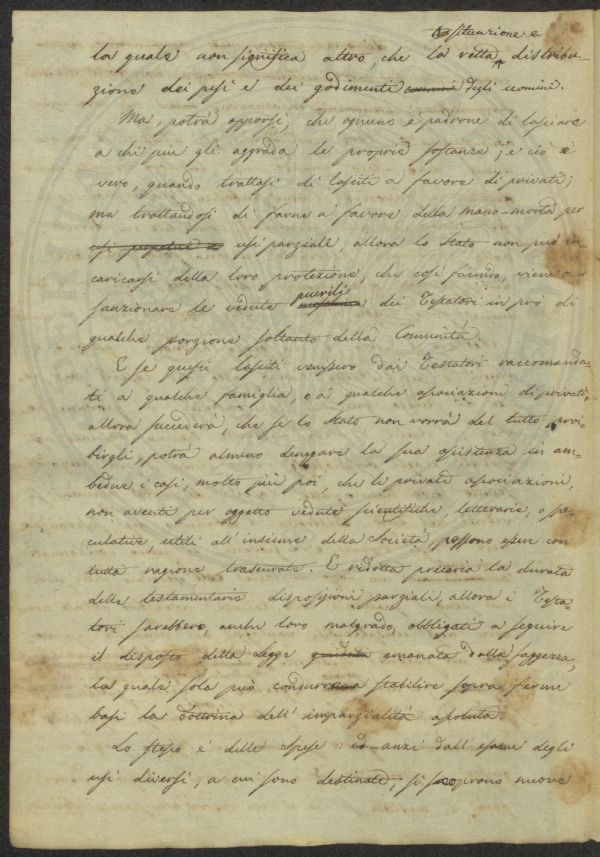 situazione e
la quale non significa altro, che la retta distribu-
zione dei pesi e dei godimenti comuni degli uomini.
Ma, potrà opporsi, che ognuno è padrone di lasciare
a chi più gli aggrada le proprie sostanze; e ciò è
vero, quando trattasi di lasciti a favore di privati;
ma trattandosi di farne a favore della mano-morta per
usi perpetui usi parziali, allora lo Stato non può in-
caricarsi della loro protezione, che così facendo, viene a
sanzionare le vedute puerili dei Testatori in pro di
qualche porzione soltanto della Comunità.
E se questi lasciti venissero dai Testatori raccomanda-
ti a qualche famiglia, o a qualche associazioni di privati,
allora succederà, che se lo Stato non vorrà del tutto proi-
birgli, potrà almeno denegare la sua assistenza in am-
bedue i casi, molto più poi, che le private associazioni,
non aventi per oggetto vedute scientifiche, letterarie, o spe-
culative, utili all'insieme della Società, possono essere con
tutta ragione trascurate. E ridotta precaria la durata
delle testamentarie disposizioni parziali, allora i Testa-
tori sarebbero, anche loro malgrado, obbligati a seguire
il disposto della Legge guidata emanata dalla saggezza,
la quale sola può condurre a stabilire sovra ferme
basi la dottrina dell'imparzialità assoluta.
Lo stesso è delle spese: ed anzi dall'esame degli
usi diversi, a cui sono destinate, si scoprono nuove